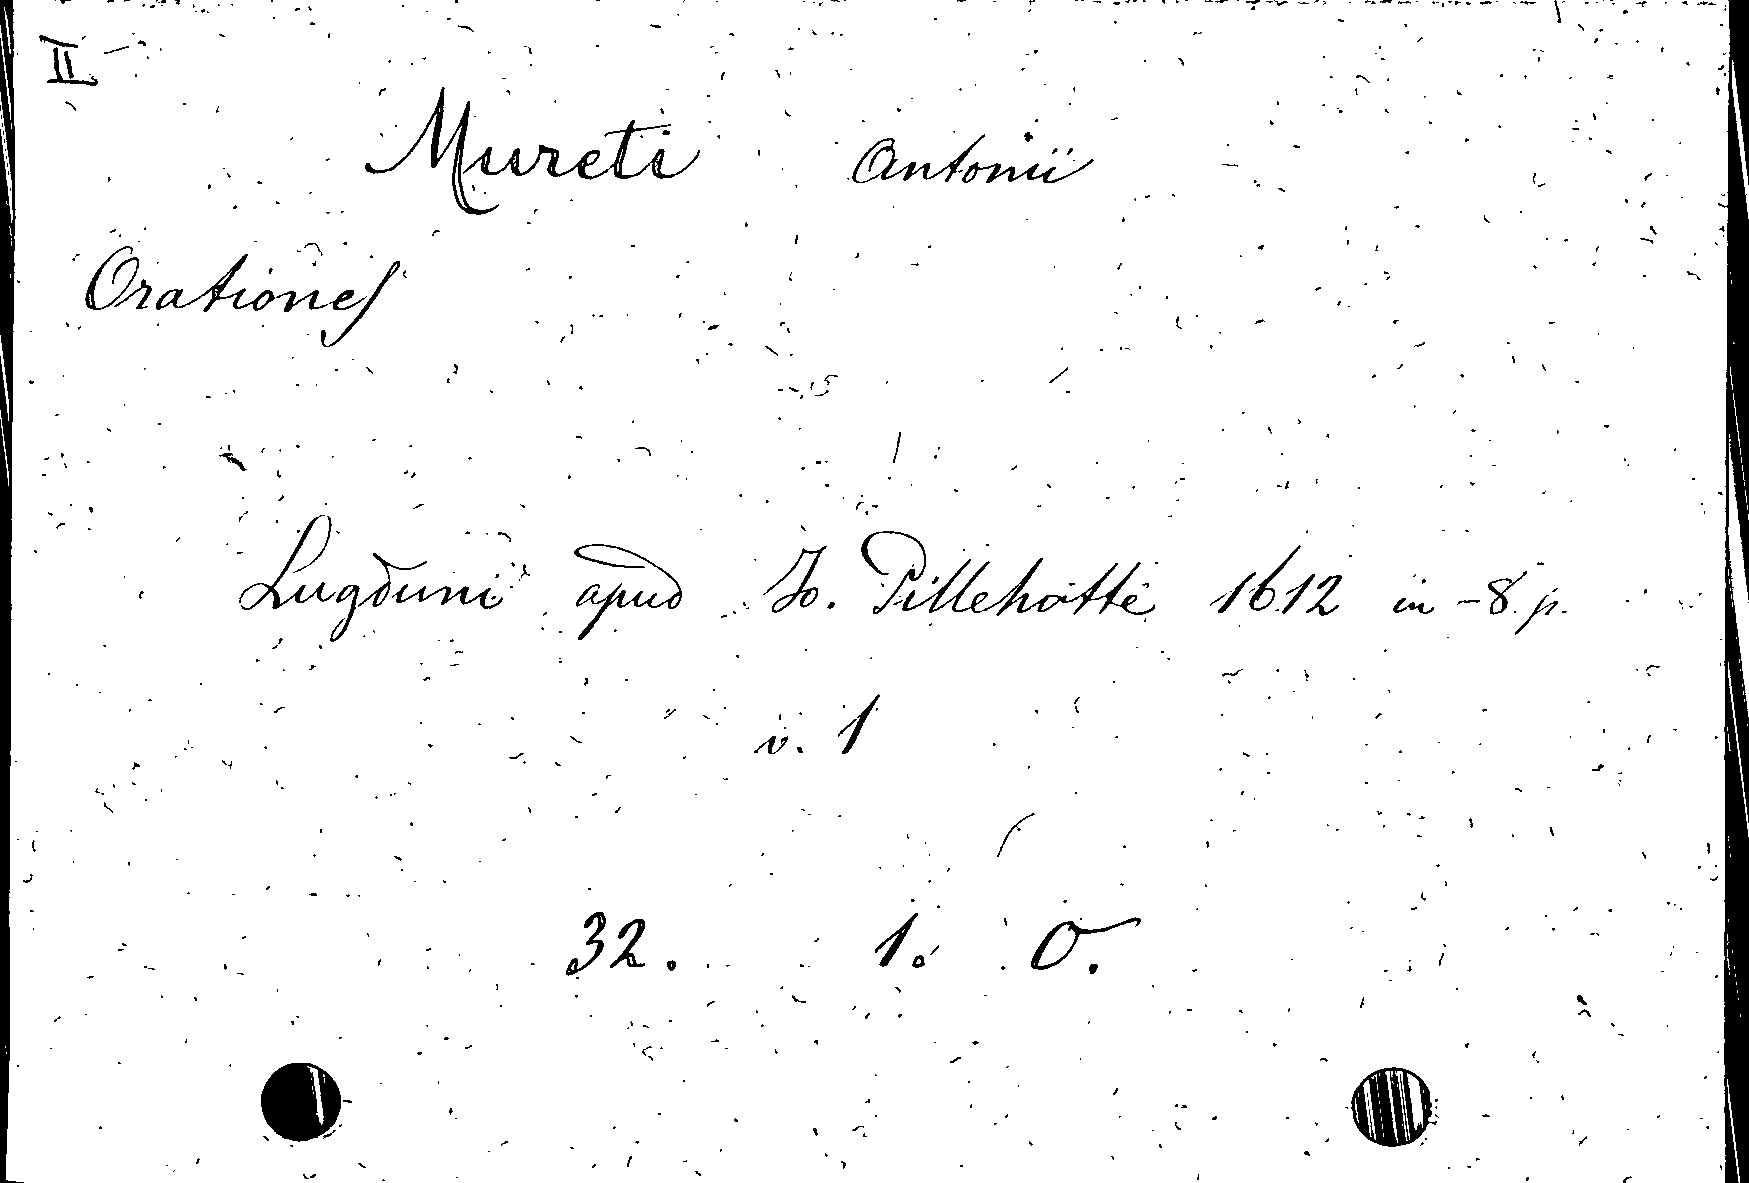 II
Mureti Antonii
Orationes
Lugduni apud Jo. Pillehotte 1612 in -8 p.
v. 1
32. 1. O.